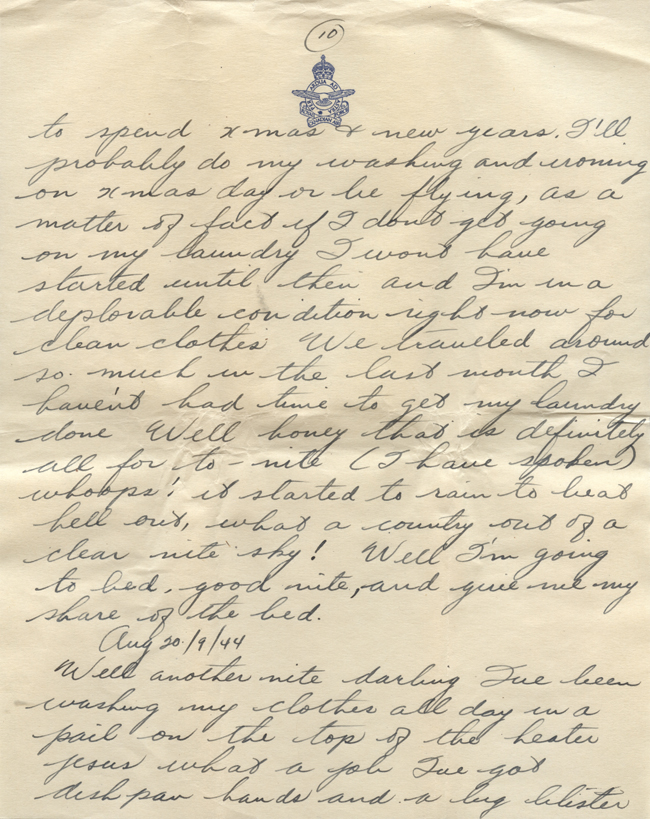 10
PER ARDUA AD ASTRA
ROYAL CANADIAN AIR FORCE
to spend xmas & new years. I'll
probably do my washing and ironing
on xmas day or be flying, as a
matter of fact if I dont get going
on my laundry I wont have
started until then and I'm in a
deplorable condition right now for
clean clothes We traveled around
so much in the last month I
haven't had time to get my laundry
done Well honey that is definitely
all for to-nite (I have spoken)
whoops! it started to rain to beat
hell out, what a country out of a
clear nite sky! Well I'm going
to bed, good nite, and give me my
share of the bed.
Aug 20/9/44
Well another nite darling I've been
washing my clothes all day in a
pail on the top of the heater
jesus what a job I've got
dish pan hands and a big blister